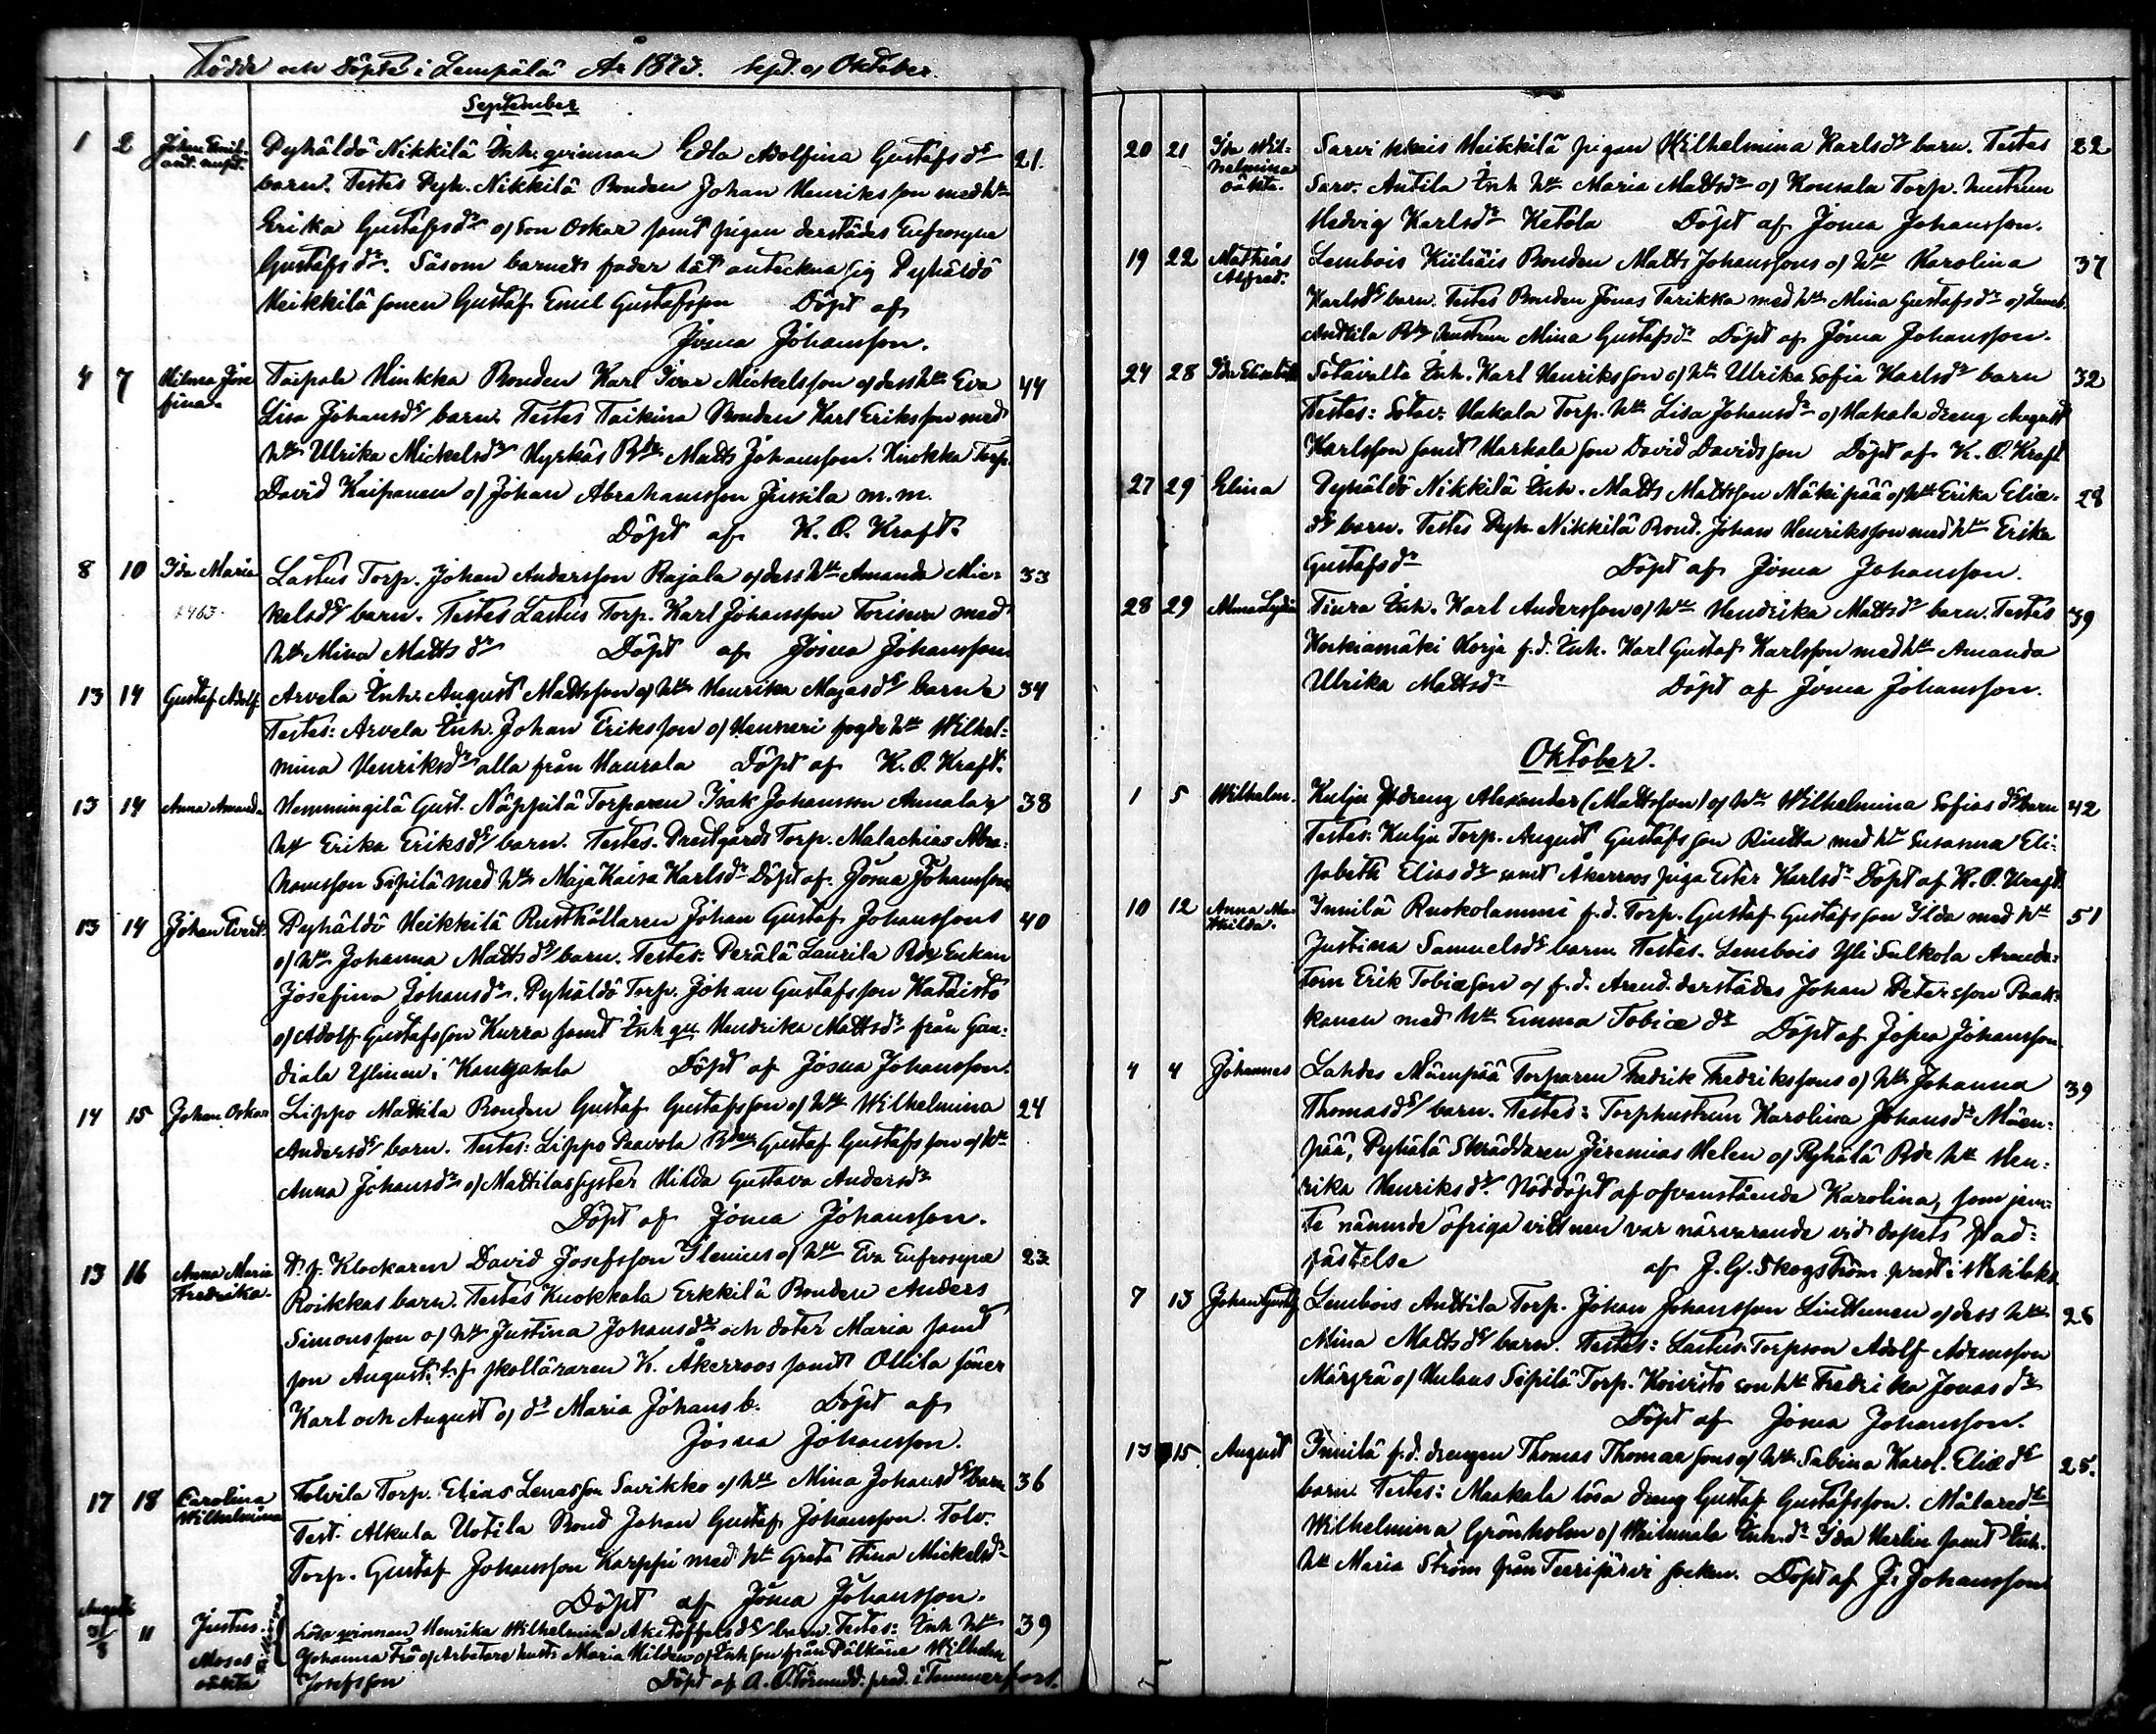 Födde och döpte i Lempälä År 1873. Sept. o Oktober.
September
1 2 Johan Emil Pyhäldö Nikkilä Inh. qvinnan Edla Adolfina Gustafsd:s 21.
barn. Testes Pyh. Nikkilä Bonden Johan Henriksson med h:u
Erika Gustafsd:r o son Oskar samt pigan derstädes Eufrosyne
Gustafsd:r. Såsom barnets fader lät anteckna sig Pyhäldö
Heikkilä sonen Gustaf Emil Gustafsson Döpt af
Josua Johansson.
4 7 Hilma Jose Taipale Hinkka Bonden Karl Ivar Mickelsson o dess h:u Eva 44
fina. Lisa Johansd:s barn. Testes Taikina Bonden Karl Eriksson med
h:u Ulrika Mickelsd:r Matts Johansson. Hinkka Torp.
David Kaipanen o Johan Abrahamsson Jussila m.m.
Döpt af K. O. Kraft.
8 10 Ida Maria Lastus Torp. Johan Andersson Rajala o dess h:u Amanda Mic- 33
kelsd:s barn. Testes Lastus Torp. Karl Johansson Torisewa med
h:u Mina Mattsd:r Döpt af Josua Johansson
13 14 Gustaf Adolf Arvela Inh. August Mattsson o h:u Henrika Majasd:s barn 34
Testes: Arvela Inh. Johan Eriksson o Henneri fogde h:u Wilhel-
mina Henriksd:r alla från Haurala Döpt af K. O. Kraft.
13 14 Anna Amanda Hemmingilä Gust. Näppilä Torparen Isak Johansson Annala o 38
h:u Erika Eriksd:s barn. Testes. Prestgårds Torp. Malachias Abra-
hamsson Sipilä med h:u Maja Kaisa Karlsd:r Döpt af Josua Johansson
13 14 Johan Pyhäldö Heikkilä Rusthållaren Johan Gustaf Johanssons 40
o h:u Johanna Mattsd:s barn. Testes: Perälä Laurila Enkan
Josefina Johansd:r. Pyhäldö Torp. Johan Gustafsson Kataisto
o Adolf Gustafsson Kurra samt Inh. qv. Hendrika Mattsd:r från Gan-
diala Ylinen i Kangasala Döpt af Josua Johansson.
14 15 Johan Oskar Lippo Mattila Bonden Gustaf Gustafsson o h:u Wilhelmina 24
Andersd:s barn. Testes: Lippo Paavola Gustaf Gustafsson o h:u
Anna Johansd:r o Mattilas syster Hilda Gustava Andersd:r
Döpt af Josua Johansson.
13 16 Anna Maria t.f. Klockaren David Josefsson Ilenius o h:u Eva Eufrosyne 23
Fredrika. Roikkas barn. Testes Kuokkala Erkkilä Bonden Anders
Simonsson o h:u Justina Johansd:r och doter Maria samt
son August. t.f. skolläraren K. Åkerroos samt Ollila söner
Karl och August o d:r Maria Johans b. Döpt af
Josua Johansson.
17 18 Carolina Tolvila Torp. Elias Lenasson Savikko o h:u Mina Johansd:s barn 36
Wilhelmina Test. Alkula Uotila Bond Johan Gustaf Johansson. Tolv.
Torp. Gustaf Johansson Karppi med h:u Greta Stina Mickelsd:r
Döpt af Josua Johansson.
Augusti
31/8 11 Justus. Lösa qvinnan Henrika Wilhelmina barn. Testes: Inh h:u 39
Moses Johanna o Arbetare hust. Maria Hildén o Inh son från Pälkäne Wilhelm
oäkta Josefsson Döpt af A. O. pred. i Tammerfors.
20 21 Ida Wil- Sarvikkais Heikkilä pigan Wilhelmina Karlsd:s barn. Testes 22
helmina Sarv. Antila Inh h:u Maria Mattsd:r o Konsala Torp. hustrun
oäkta. Hedvig Karlsd:r Ketola Döpt af Josua Johansson.
19 22 Mathias Lembois Kiiliäis Bonden Matts Johanssons o h:u Karolina 37
Alfred. Karlsd:s barn. Testes Bonden Jonas Tarikka med h:u Mina Gustafsd:r o Lemb.
Anttila hustrun Mina Gustafsd:r Döpt af Josua Johansson.
24 28 Ida Elisabeth Sotavalta Inh. Karl Henriksson o h:u Ulrika Sofia Karlsd:r barn 32
Testes: Sotav. Hakala Torp. h:u Lisa Johansd:r o Hakala dreng August
Karlsson samt Markala son David Davidsson Döpt af K. O. Kraft
27 29 Elina Pyhäldö Nikkilä Inh. Matts Mattsson Mäkipää o h:u Erika Eliæ- 28
d:s barn. Testes Pyh. Nikkilä Bond. Johan Henriksson med h:u Erika
Gustafsd:r Döpt af Josua Johansson.
28 29 Alma Lydia Tiura Inh. Karl Andersson o h:u Hendrika Mattsd:r barn. Testes 39
Koskiamäki Korja f.d. Inh. Karl Gustaf Karlsson med h:u Amanda
Ulrika Mattsd:r Döpt af Josua Johansson.
Oktober.
1 5 Wilhelm. Kulju dreng Alexander (Mattsson) o h:u Wilhelmina Sofias d:s barn 42
Testes: Kulju Torp. August Gustafsson Rindta med h:u Susanna Eli-
sabeth Eliasd:r samt Åkerroos piga Ester Karlsd:r Döpt af K. O. Kraft.
10 12 Anna Ma- Innilä Ruokolammi f.d. Torp. Gustaf Gustafsson Ilda med h:u 51
thilda. Justina Samuelsd:s barn. Testes. Lembois Yli Sulkola Arenda-
torn Erik Tobiæson o f.d. Arend. derstädes Johan Petersson Paak-
kanen med h:u Emma Tobiæ d:r Döpt af Josua Johansson
4 4 Johannes Lahdes Mäenpää Torparen Fredrik Fredrikssons o h:u Johanna 39
Thomasd:s barn. Testes: Torphustrun Karolina Johansd:r Mäen-
pää, Pyhälä Skräddaren Jeremias Helen o Pyhälä h:u Hen-
rika Henriksd:r. Nöddöpt af ofvanstående Karolina, som jem-
te nämnde öfriga vittnen var närvarande vid dopets stad-
fästelse af J. G. Skogström pred. i Wesilaks
7 13 Johan Gustaf Lembois Anttila Torp. Johan Johansson Lindtunen o dess h:u 26
Mina Mattsd:s barn. Testes: Lastus Torpson Adolf Adamsson
o Kulans Sipilä Torp. Koivisto son h:u Fredrika Jonasd:r
Döpt af Josua Johansson.
13 15 August Innilä f.d. drengen Thomas Thomassons o h:u Sabina Karol. Eliæ d:s 25.
barn Testes: Maakala lösa dreng Gustaf Gustafsson. Målared:r
Wilhelmina Grönholm o Inh. d:r Ida Herlin samt Inh.
h:u Maria Ström från Teerijärvi socken. Döpt af J. Johansson